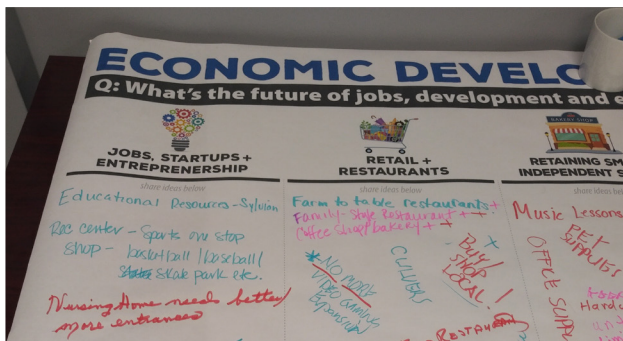 ECONOMIC DEVELO
Q: What's the future of jobs, development and e
JOBS, STARTUPS +
ENTREPRENERSHIP
share ideas below
Educational Resources - Sylvian
Rec center - Sports one stop
shop - basketball / baseball /
skate park etc.
Nursing Home needs better/
more entrances
RETAIL +
RESTAURANTS
share ideas below
Farm to table restaurants +
Family-Style Restaurant + +
Coffee Shop/bakery + +
* NO MORE
VIDEO GAMING
EXPANSION
CULVERS
+
BUY/
SHOP
LOCAL!
RESTAURAN
BAKERY SHOP
RETAINING SM
INDEPENDENT S
share ideas bel
Music Lessons
PET
SUPPLIES
OFFICE SUPPL
Hardw